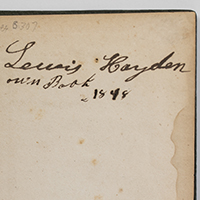 Lewis Hayden
own Book
1848